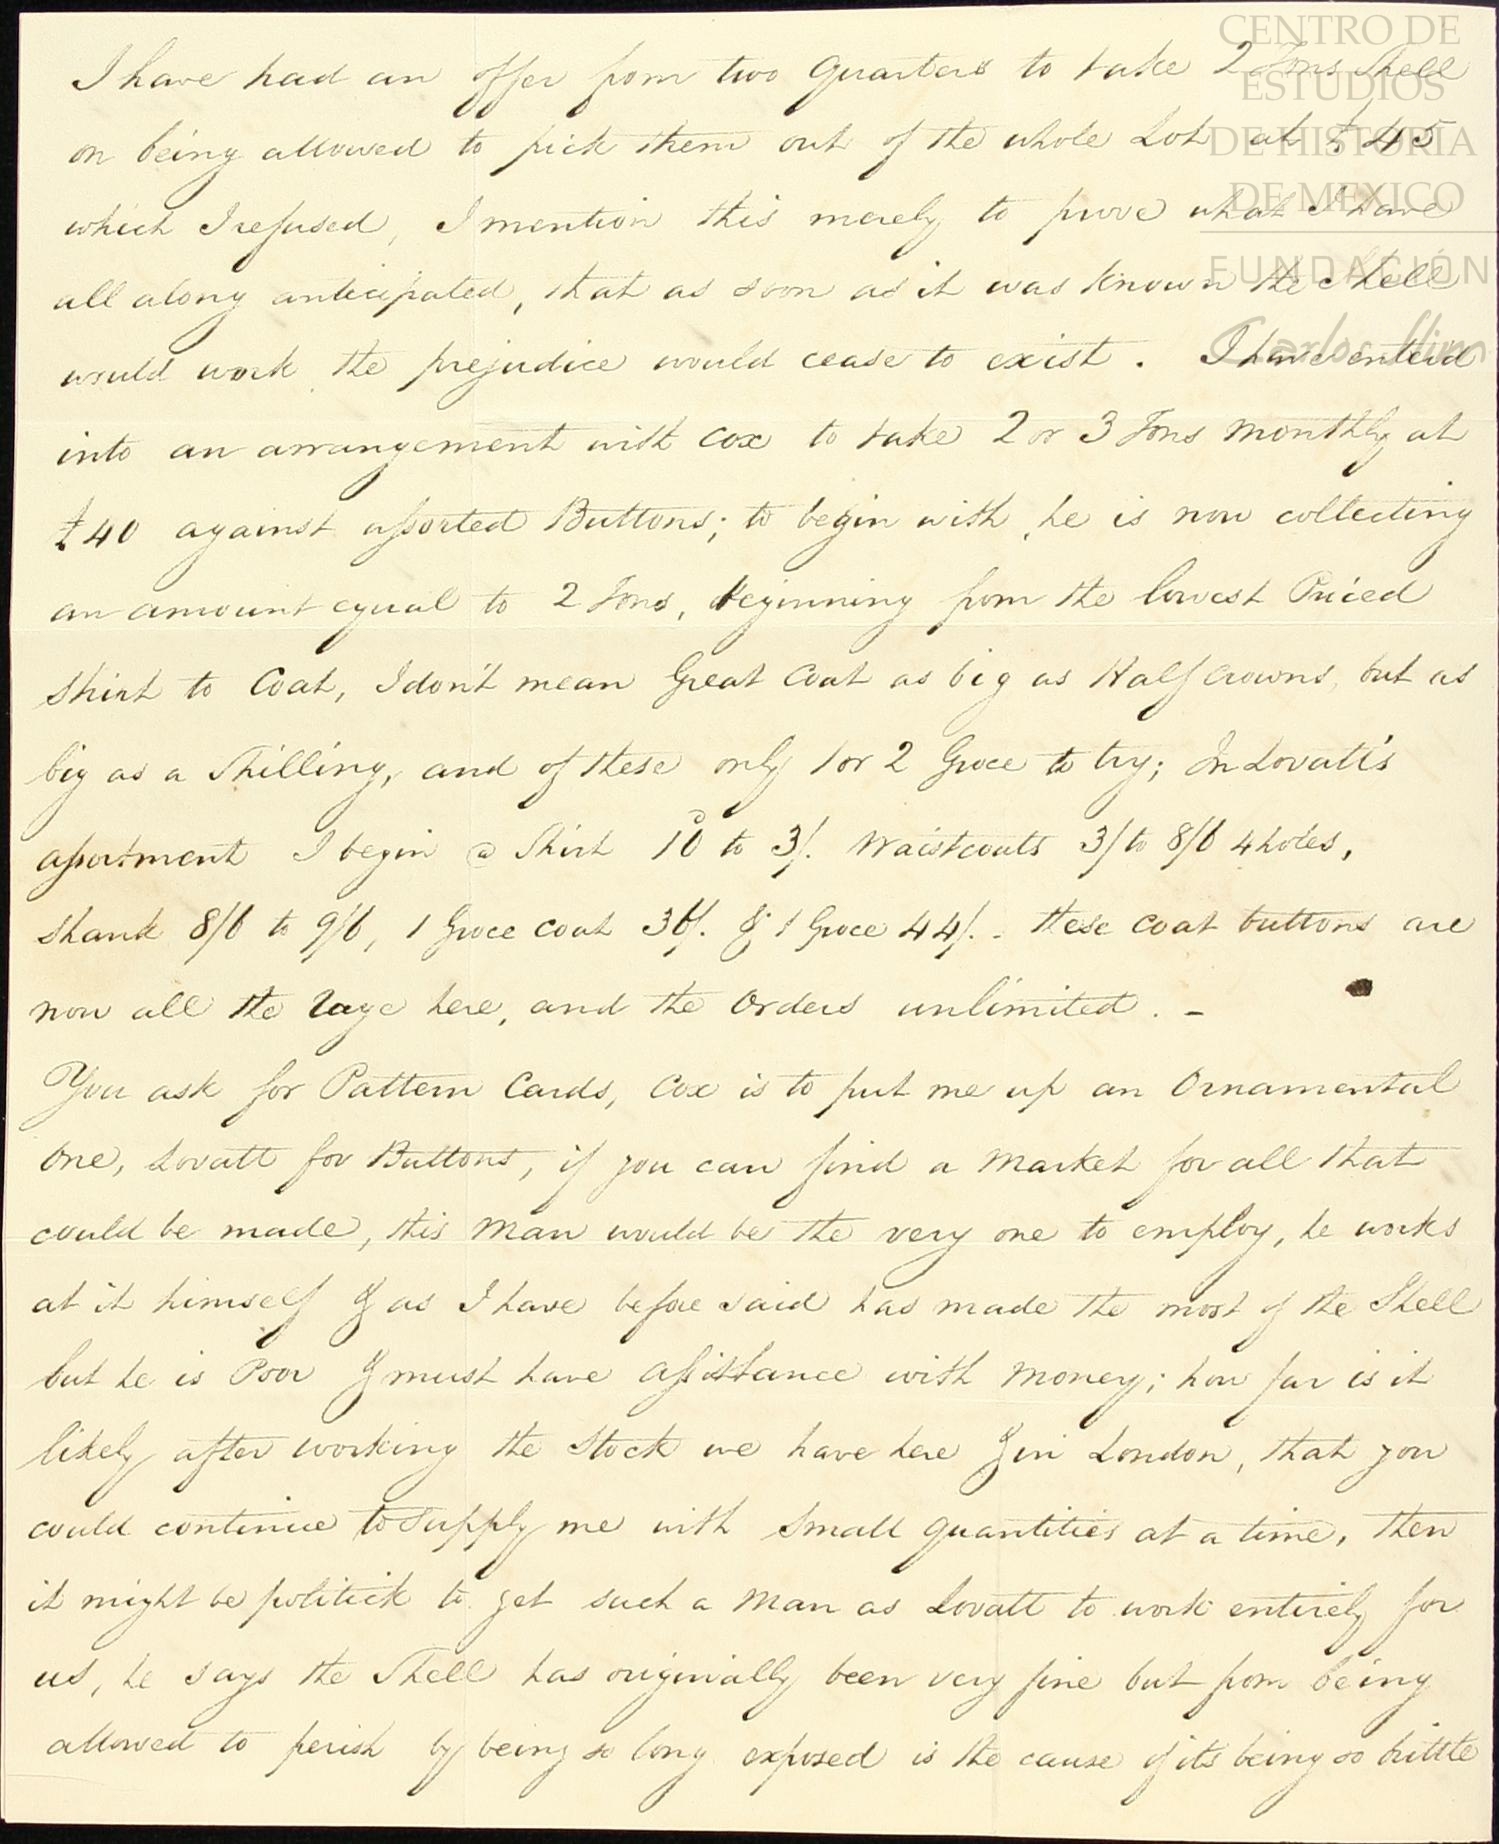 CENTRO DE
ESTUDIOS
DE HISTORIA
DE MEXICO
FUNDACIÓN
Carlos Slim
I have had an offer from two quarters to take 2 Tons Shell
on being allowed to pick them out of the whole Lot at £45
which I refused, I mention this merely to prove what I have
all along anticipated, that as soon as it was known the Shell
would work the prejudice would cease to exist. I have enterd
into an arrangement with Cox to take 2 or 3 Tons monthly at
£40 against assorted Buttons; to begin with, he is now collecting
an amount equal to 2 Tons, beginning from the lowest Priced
Shirt to Coat, I don't mean Great Coat as big as Half Crowns, but as
big as a Shilling, and of these only 1 or 2 Groce to try; In Lovatt's
assortment I begin @ Shirt 10d to 3/. Waistcoats 3/ to 8/6 4 holes,
Shank 8/6 to 9/6, 1 Groce Coat 36/. & 1 Groce 44/. - these Coat buttons are
now all the rage here, and the Orders unlimited. -
You ask for Pattern Cards, Cox is to put me up an Ornamental
One, Lovatt for Buttons, if you can find a Market for all that
could be made, this Man would be the very one to employ, he works
at it himself & as I have before said has made the most of the Shell
but he is Poor & must have assistance with Money; how far is it
likely after working the Stock we have here & in London, that you
could continue to supply me with small quantities at a time, then
it might be politick to get such a Man as Lovatt to work entirely for
us, he says the Shell has originally been very fine but from being
allowed to perish by being so long exposed is the cause of its being so brittle